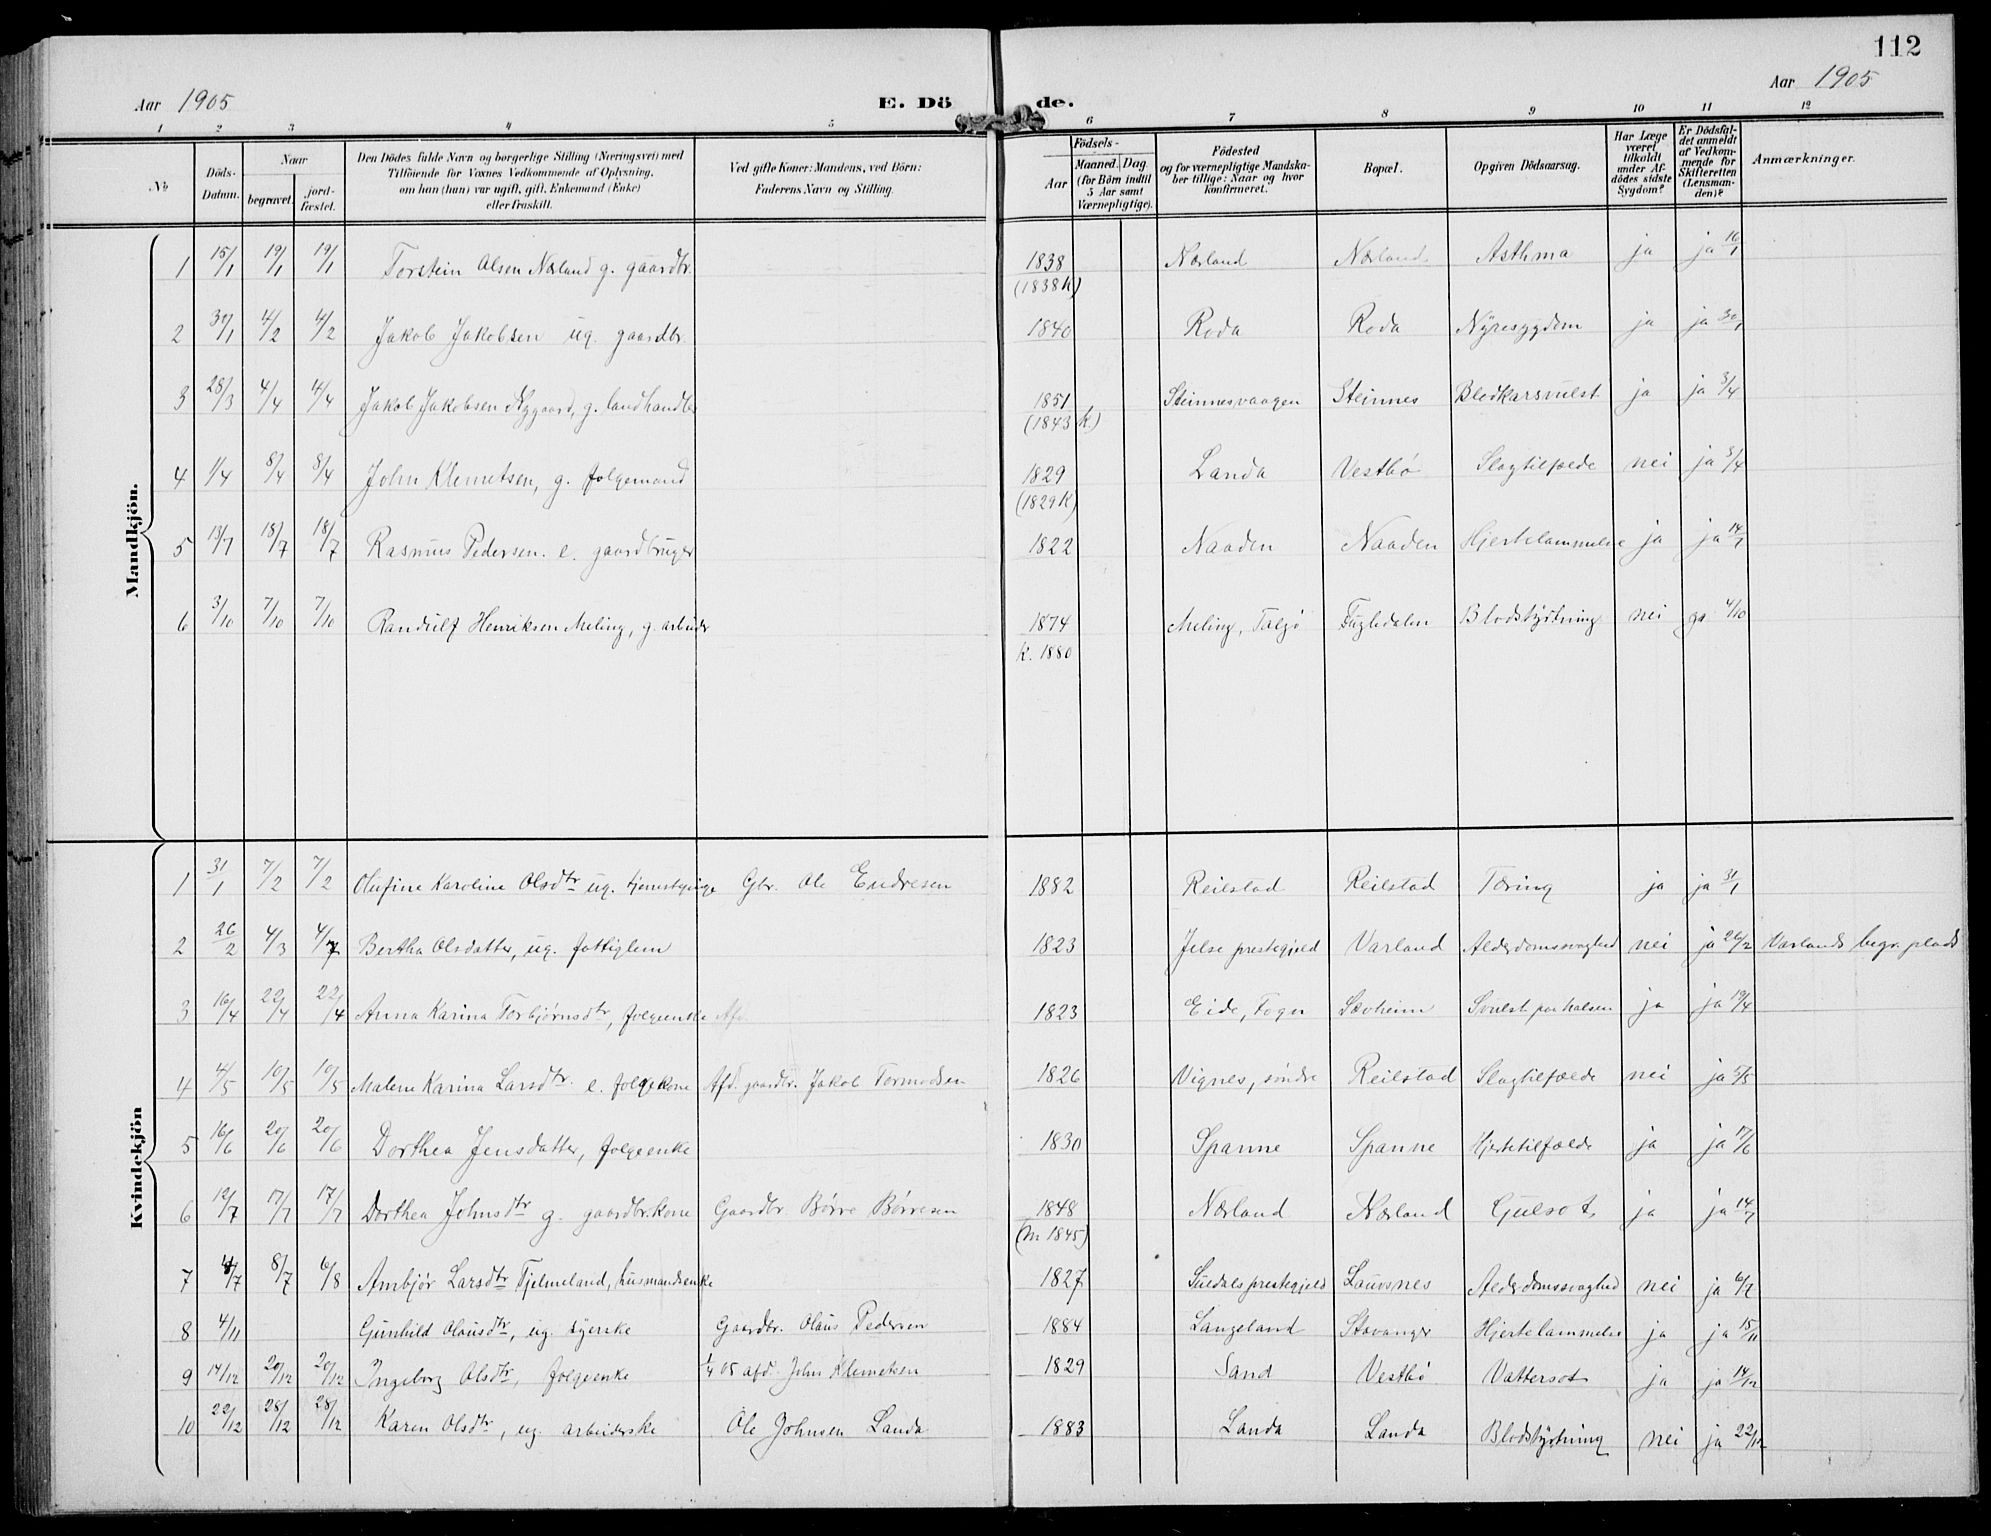 112
Aar 1905
E. Döde.
Aar 1905
1 2 3 4 5 6 7 8 9 10 11 12
No
Döds-Datum.
Naar
begravet.
jord-fæstet.
Den Dödes fulde Navn og borgerlige Stilling (Næringsvei) med
Tilföiende for Voxnes Vedkommende af Oplysning,
om han (hun) var ugift, gift, Enkemand (Enke)
eller fraskilt.
Ved gifte Koner: Mandens, ved Börn:
Faderens Navn og Stilling.
Födsels-
Aar
Maaned. Dag
(for Börn indtil
5 Aar samt
Værnepligtige).
Födested
og for værnepligtige Mandska-
ber tillige: Naar og hvor
konfirmeret.
Bopæl.
Opgiven Dödsaarsag.
Har Læge
været
tilkaldt
under Af-
dödes sidste
Sygdom?
Er Dödsfal-
det anmeldt
af Vedkom-
mende for
Skifteretten
(Lensman-
den)?
Anmærkninger.
Mandkjön.
1 15/1 19/1 19/1 Torstein Olsen Nærland g. gaardbr. 1838 Nærland Nærland. Asthma ja ja 16/1
(1838 k)
2 30/1 4/2 4/2 Jakob Jakobsen ug. gaardbr. 1840 Roda Roda Nyresygdom ja ja 30/1
3 28/3 4/4 4/4 Jakob Jakobsen Nygaard, g. landhandler 1851 Steinnesvaagen Steinnes Blodkarsvulst ja ja 3/4
(1843 k.)
4 1/4 8/4 8/4 John Klemetsen, g. folgemand 1829 Landa Vestbø Slagtilfælde nei ja 3/4
(1829 k)
5 13/7 18/7 18/7 Rasmus Pedersen. e. gaardbruger 1822 Naaden Naaden Hjertelammelse ja ja 14/7
6 3/10 7/10 7/10 Randulf Henriksen Meling, g. arbeider 1874 Meling, Talgø Fugledalen Blodstyrtning nei ja 4/10
k. 1880
Kvindekjön
1 31/1 7/2 7/2 Olufine Karoline Olsdtr ug. tjenestepige Gbr. Ole Endresen 1882 Reilstad Reilstad Tæring ja ja 31/1
2 26/2 4/3 4/7 Bertha Olsdatter, ug. fattiglem 1823 Jelse prestegjeld Varland Alderdomssvaghed nei ja 26/2 Varlands begr. plads
3 16/4 22/4 22/4 Anna Karina Torbjørnsdtr, folgeenke Afd 1823 Eide, Fogn Sævheim Svulst paa halsen ja ja 19/4
4 4/5 10/5 10/5 Malene Karina Larsdtr. e. folgekone Afd. gaardbr. Jakob Tormodsen 1826 Vignes, søndre Reilstad Slagtilfælde nei ja 5/5
5 16/6 20/6 20/6 Dorthea Jensdatter, folgeenke 1830 Spanne Spanne Hjertetilfælde ja ja 17/6
6 12/7 17/7 17/7 Dorthea Johnsdtr g. gaardbr.kone Gaardbr. Børre Børresen 1848 Nærland Nærland Gulsot. ja ja 14/7
(m 1845)
7 4/7 8/7 6/8 Ambjør Larsdtr Tjelmeland, husmandsenke 1827 Suldals prestegjeld Lauvsnes Alderdomssvaghed nei ja 6/7
8 4/11 Gunhild Olausdtr, ug. syerske Gaardbr. Olaus Pedersen 1884 Langeland Stavanger Hjertelammelse ja ja 15/11
9 14/12 20/12 20/12 Ingeborg Olsdtr, folgeenke 1/4 05 afd. John Klemetsen 1829 Sand Vestbø Vattersot ja ja 14/12
10 22/12 28/12 28/12 Karen Olsdtr, ug. arbeiderske Ole Johnsen Landa 1883 Landa Landa Blodstyrtning nei ja 22/12